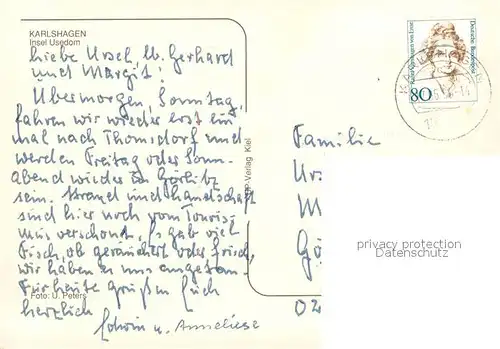 KARLSHAGEN
Insel Usedom
Liebe Ursel, lb. Gerhard
und Margit!
Übermorgen, Sonntag,
fahren wir wieder erst ein
mal nach Thomsdorf und
werden Freitag oder Sonn-
abend wieder in Görlitz
sein. Strand und Landschaft
sind hier noch vom Touris-
mus verschont. Es gab viel
Fisch, ob geräuchert oder frisch,
wir haben es uns angetan.
Für heute grüßen Euch
herzlich
Edwin u. Anneliese
Foto: U. Peters
-Verlag Kiel
Deutsche Bundespost
80
Familie
Ur
M
Gö
02
privacy protection
Datenschutz